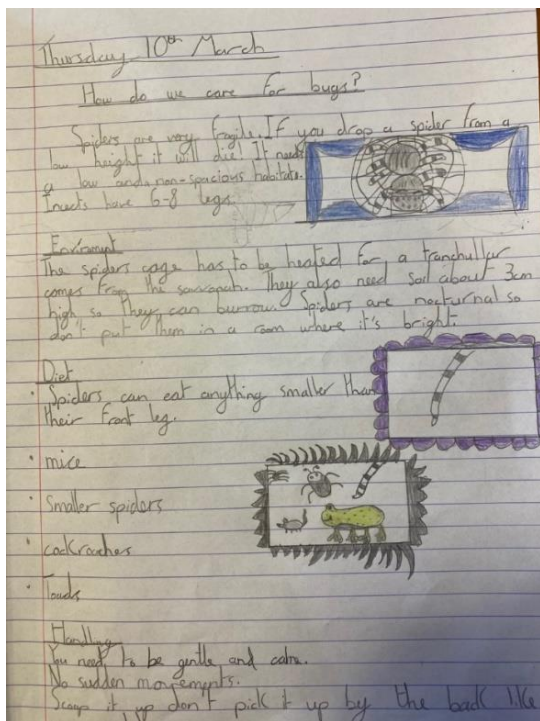 Thursday 10th March
How do we care for bugs?
Spiders are very fragile. If you drop a spider from a
low height it will die! It needs
a low and non-spacious habitate.
Insects have 6-8 legs.
Enviroment
The spiders cage has to be heated for a tranchullar
comes from the savvanah. They also need soil about 3cm
high so they can burrow. Spiders are nocturnal so
don't put them in a room where it's bright.
Diet
• Spiders can eat anything smaller than
their front leg.
• mice
• Smaller spiders
• cockroaches
• Toads
Handling
You need to be gentle and calm.
No sudden movements.
Scoop it up don't pick it up by the back like